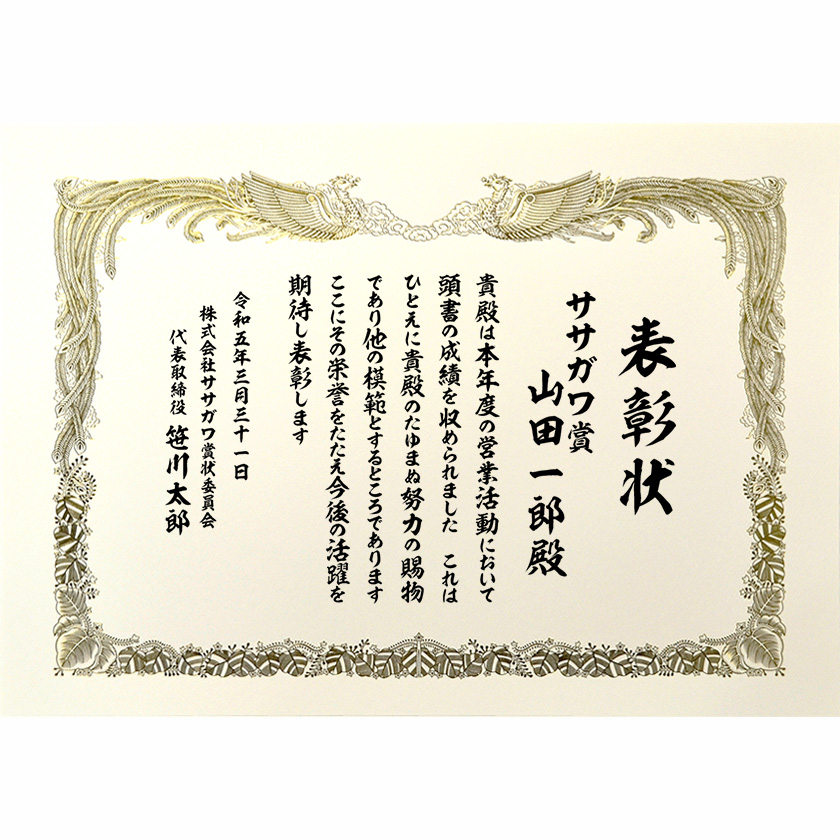 表彰状
ササガワ賞
山田一郎殿
貴殿は本年度の営業活動において
頭書の成績を収められました　これは
ひとえに貴殿のたゆまぬ努力の賜物
であり他の模範とするところであります
ここにその栄誉をたたえ今後の活躍を
期待し表彰します
令和五年三月三十一日
株式会社ササガワ賞状委員会
代表取締役 笹川太郎